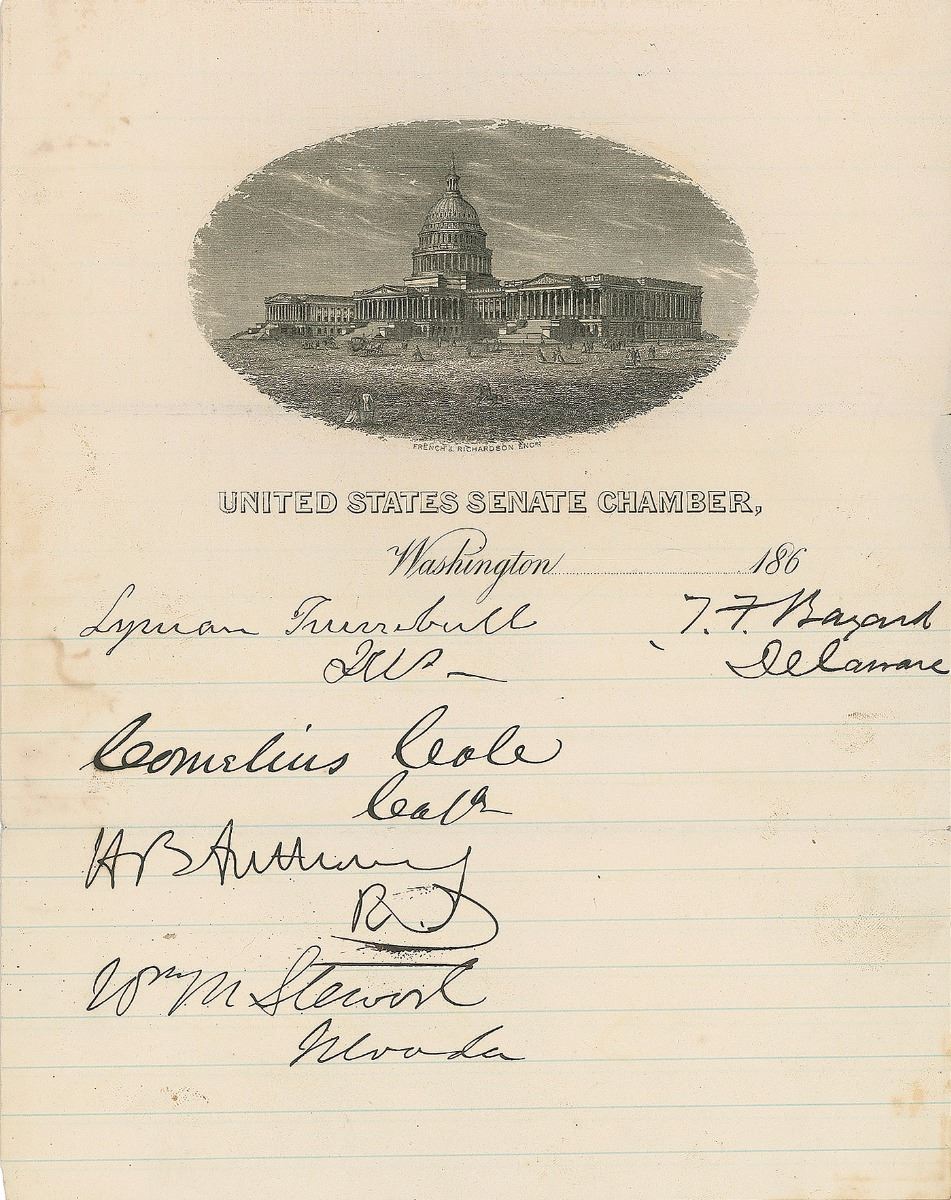 FRENCH & RICHARDSON ENGRS
UNITED STATES SENATE CHAMBER,
Washington 186
Lyman Trumbull
Ills
T. F. Bayard
Delaware
Cornelius Cole
Cala
H B Anthony
R.I
Wm M Stewart
Nevada